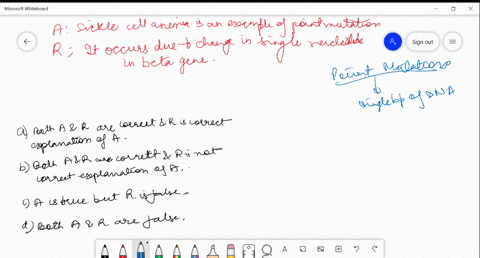 Microsoft Whiteboard
A: Sickle cell anemia is an example of point mutation
R: It occurs due to change in single nucleotide
in beta gene.
Sign out
Point Mutations
single bp of DNA
a) Both A & R are correct & R is correct
explanation of A.
b) Both A & R are correct & R is not
correct explanation of A.
c) A is true but R is false.
d) Both A & R are false.